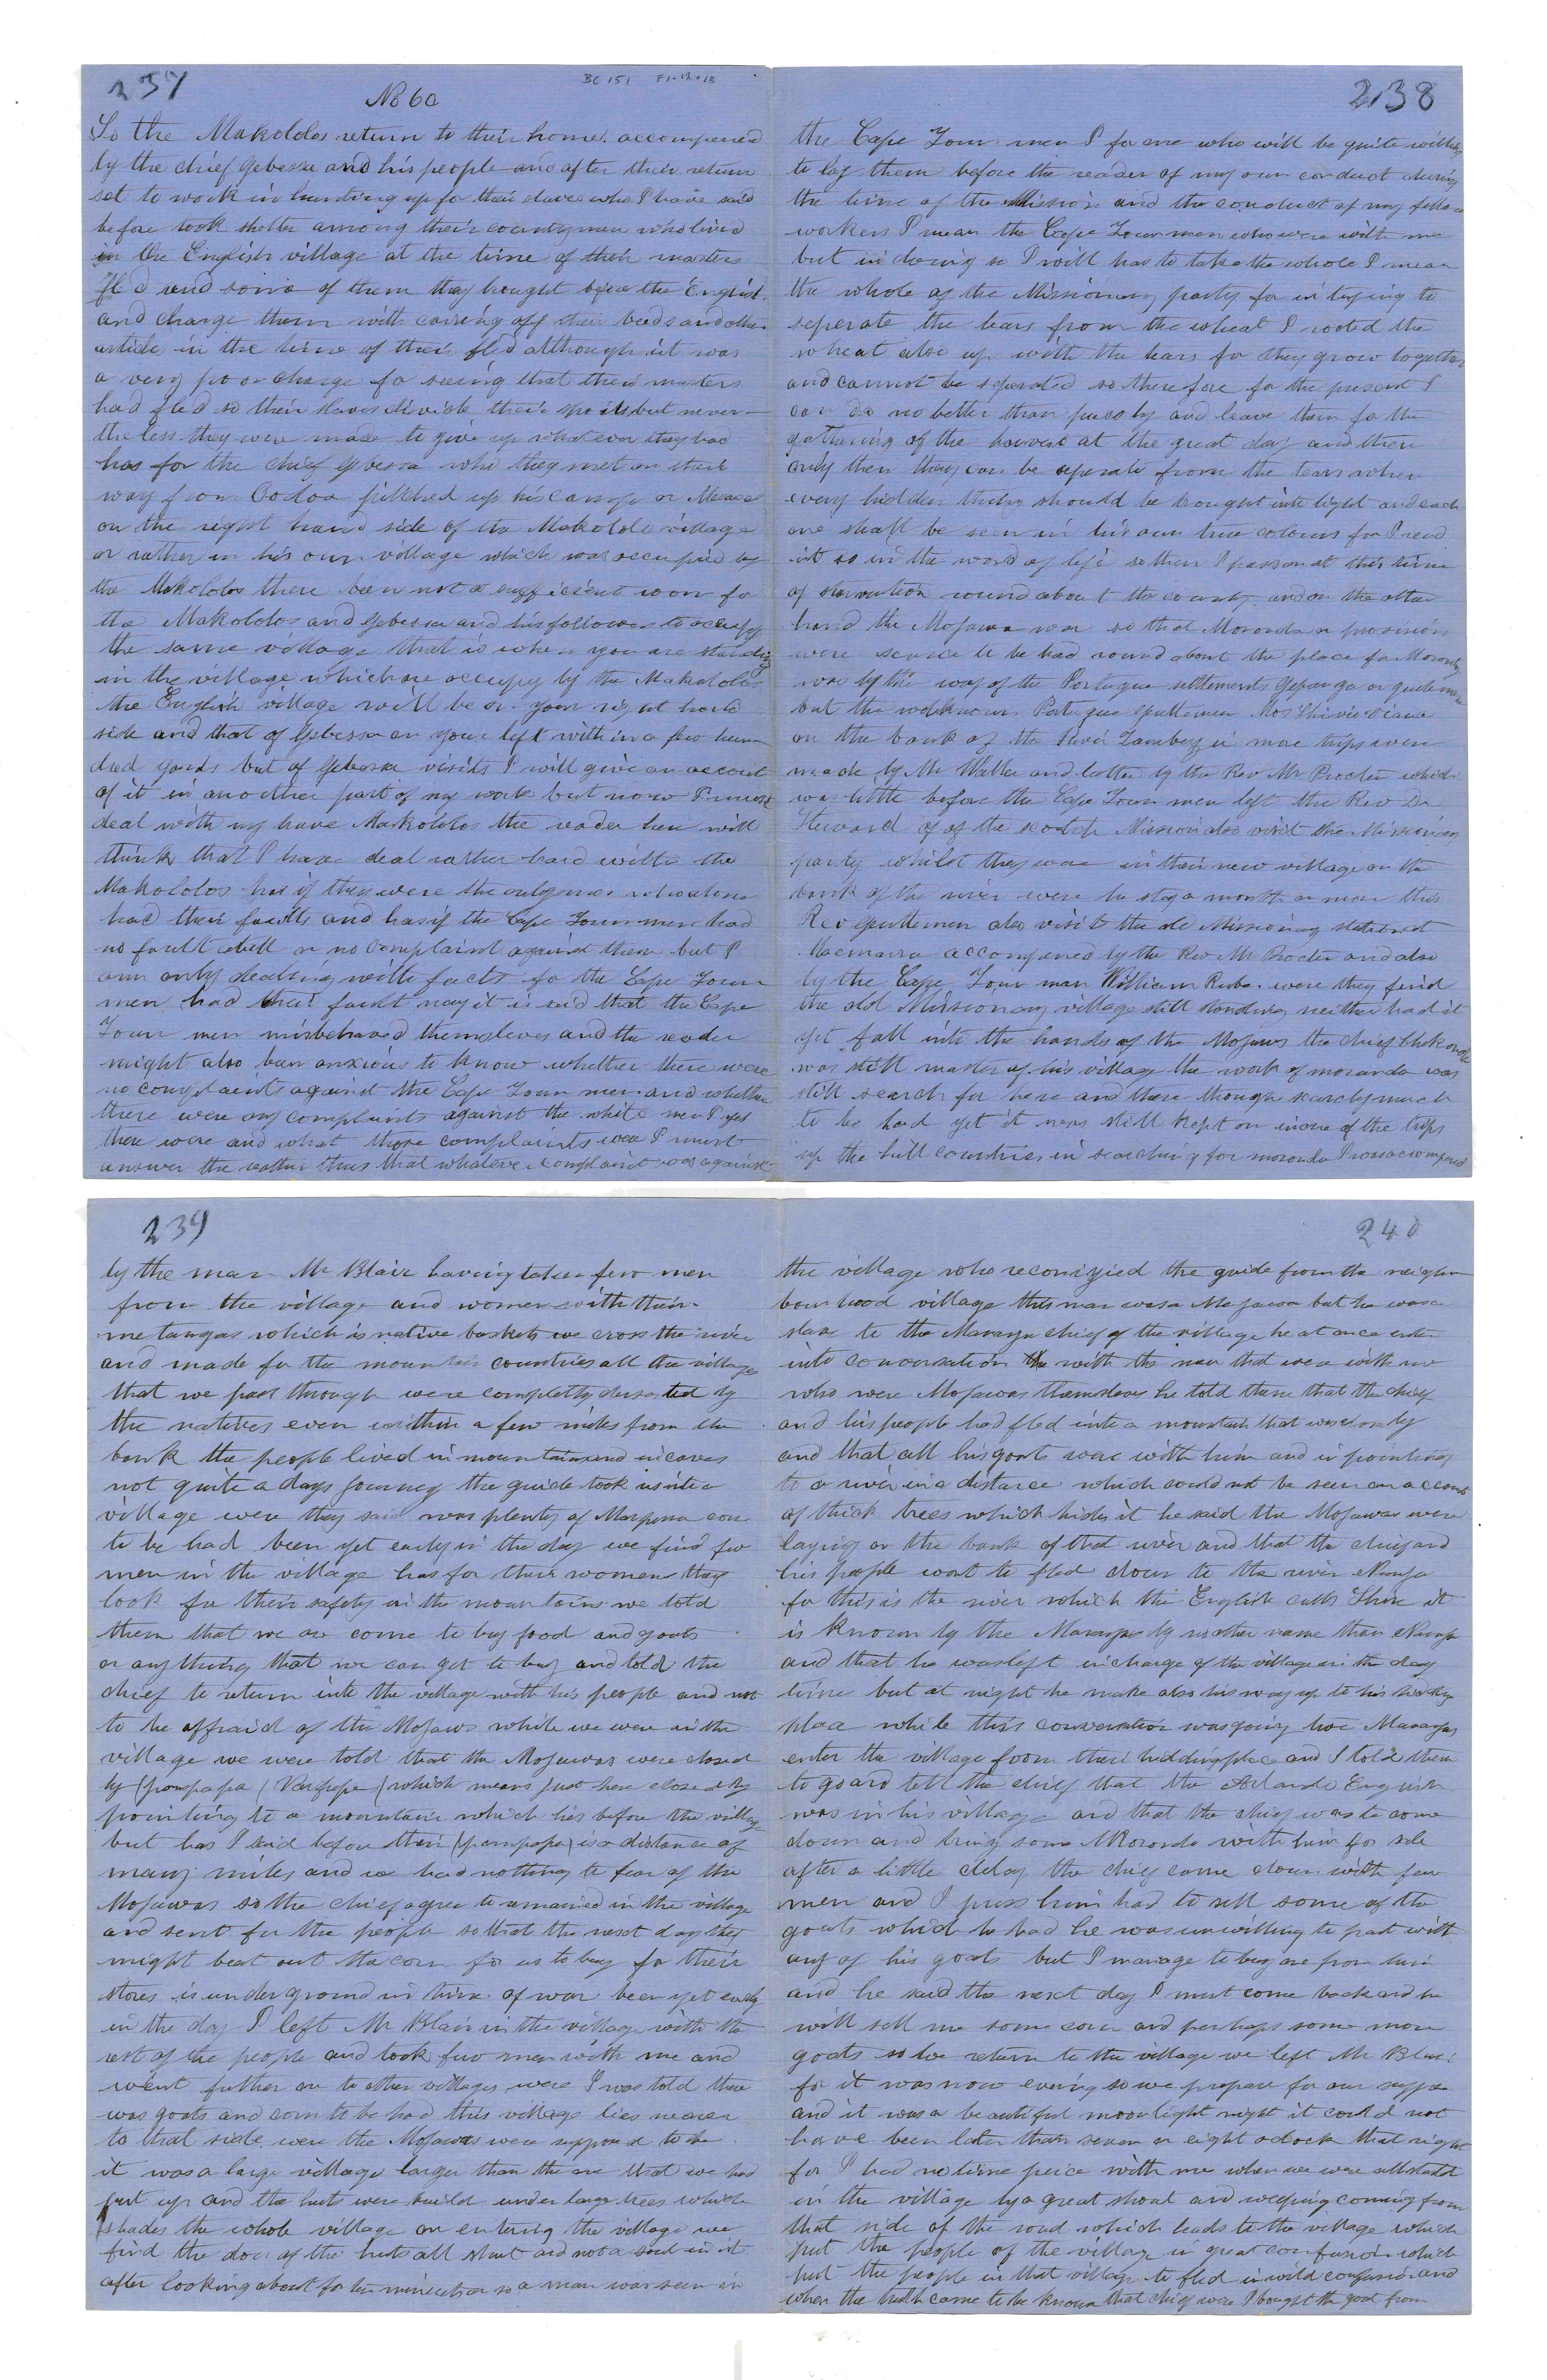 237
No 60
BC 151 F1.12.18
So the Makololos return to their home. accompened
by the chief Gebessa and his people and after their return
set to work in hunting up for their slaves who I have said
before took shelter among their countrymen who lived
in the English village at the time of their masters
fled and some of them they brought before the English
and charge them with carring off their beeds and other
articles in the time of their fled although it was
a very poor charge for seeing that their masters
had fled so their slaves divide their spoils but never-
theless they were made to give up what ever they had
has for the chief Gebessa who they met on their
way from pitched up his camp or
on the right hand side of the Makololo village
or rather in his own village which was occupied by
the Makololos there been not a sufficient room for
the Makololos and Gebessa and his followers to occupy
the same village that is when you are standing
in the village which are occupy by the Makololos
the English village will be on your right hand
side and that of Gebessa on your left with in a few hun
dred yards but of Gebessa visits I will give an account
of it in another part of my work but now I must
deal with my brave Makololos the reader here will
think that I have deal rather hard with the
Makololos has if they were the only men who alone
had their faults and has if the Cape Town men had
no fault atall or no complaint against them but I
am only dealing with facts for the Cape Town
men had their fault nay it is said that the Cape
Town men misbehaved themsleves and the reader
might also been anxious to know whether there were
no complaents against the Cape Town men and whether
there were any complaints against the white men I yes
there were and what those complaints were I must
answer the rather thus that whatever complaint was against
238
the Cape Town men I for one who will be quite willing
to lay them before the reader of my own conduct during
the time of the Mission and the conduct of my fellow
workers I mean the Cape Town men who were with me
but in doing so I will has to take the whole I mean
the whole of the Missionary party for in trying to
seperate the tears from the wheat I rooted the
wheat also up with the tears for they grow together
and cannot be seperated so therefore for the present I
can do no better than pass by and leave them for the
gathering of the harvest at the great day and then
only then they can be seperate from the tears when
every hidden thing should be brought into light and each
one shall be seen in his own true colours for I read
it so in the word of life so then I pass on at this time
of starvation round about the county and on the other
hand the Mojawa war so that Moronda or provisions
were scarce to be had round about the place for Moronda
was by the way of the Portugue settlements or
but the well known Portugue gentlemen
on the bank of the River Zambezi in mae trips were
made by Mr Waller and latter by the Rev Mr Procter which
was little before the Cape Town men left the Rev Dr
Steward of of the scotch Mission also visit the Missionary
party whilst they were in their new village on the
bank of the river were he stop a month or more this
Rev gentlemen also visit the old Missionary station at
accompened by the Rev Mr Procter and also
by the Cape Town man William were they find
the old Missionary village still standing neither had it
yet fall into the hands of the Mojawas the chief
was still master of his village the work of moranda was
still search for here and there though scarcly much
to be had yet it was still kept on in one of the trips
up the hill countries in searching for moronda I was accompened
239
by the man Mr Blair having taken few men
from the village and women with their
metangas which is native baskets we cross the river
and made for the mountain countries all the village
that we pass through were completly deserted by
the natives even within a few miles from the
bank the people lived in mountains and in caves
not quite a days journey the guide took us into a
village were they said was plenty of corn
to be had been yet early in the day we find few
men in the village has for their women they
look for their safety in the mountains we told
them that we are come to buy food and goats
or any thing that we can get to buy and told the
chief to return into the village with his people and not
to be affraid of the Mojaws while we were in the
village we were told that the Mojawas were closed
by (pampapa ( which means just here closed by
pointing to a mountain which lies before the village
but has I said before their (pampapa) is a distance of
many miles and we had nothing to fear of the
Mojawas so the chief agree to remained in the village
and sent for the people so that the next day they
might beat out the corn for us to buy for their
stores is underground in time of war been yet early
in the day I left Mr Blair in the village with the
rest of the people and took few men with me and
went futher on to other villages were I was told there
was goats and corn to be had this village lies nearer
to that side were the Mojawas were supposed to be
it was a large village larger than the one that we had
put up and the huts were build under large trees which
shades the whole village on entering the village we
find the door of the huts all shut and not a soul in it
after looking about for ten minutes or so a man was seen in
240
the village who reconizied the guide from the neigh
bourhood village this man was a Mojawa but he was a
slave to the Maranga chief of the village he at once enter
into conversation the with the men that were with me
who were Mojawas themsleves he told them that the chief
and his people had fled into a mountain that was closely
and that all his goats were with him and in pointing
to a river in a distance which could not be seen on account
of thick trees which hides it he said the Mojawas were
laying on the bank of that river and that the chief and
his people want to fled down to the river
for this is the river which the English calls Shire it
is known by the by no other name than
and that he was left in charge of the village in the day
time but at night he make also his way up to his hidding
place while this conversation was going two
enter the village from their hidding place and I told them
to go and tell the chief that the English
was in his village and that the chief was to come
down and bring some Moronda with him for sale
after a little delay the chief came down with few
men and I press him had to sell some of the
goats which he had he was unwilling to part with
any of his goats but I manage to buy one from him
and he said the next day I must come back and he
will sell me some corn and perhaps some more
goats so we return to the village we left Mr Blair
for it was now evening so we prepare for our supper
and it was a beautiful moonlight night it could not
have been later than seven or eight oclock that night
for I had no time peice with me when we were all startled
in the village by a great shout and weeping coming from
that side of the road which leads to the village which
put the people of the village in great confusion which
put the people in that village to fled in wild confusion and
when the truth came to be known that chief were I bought the goat from